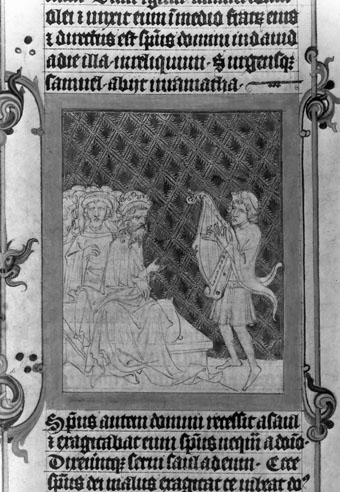 olei ⁊ unxit eum ĩ medio fratrꝫ eius
⁊ directus est spũs domini in dauid
a die illa in reliquum · Surgensqꝫ
samuel · abijt in ramatha ·
Spũs autem domini recessit a saul
⁊ exagitabat eum spũs nequã a dño
Dixeruntqꝫ serui saul ad eum · Ecce
spũs dei malus exagitat te iubeat do